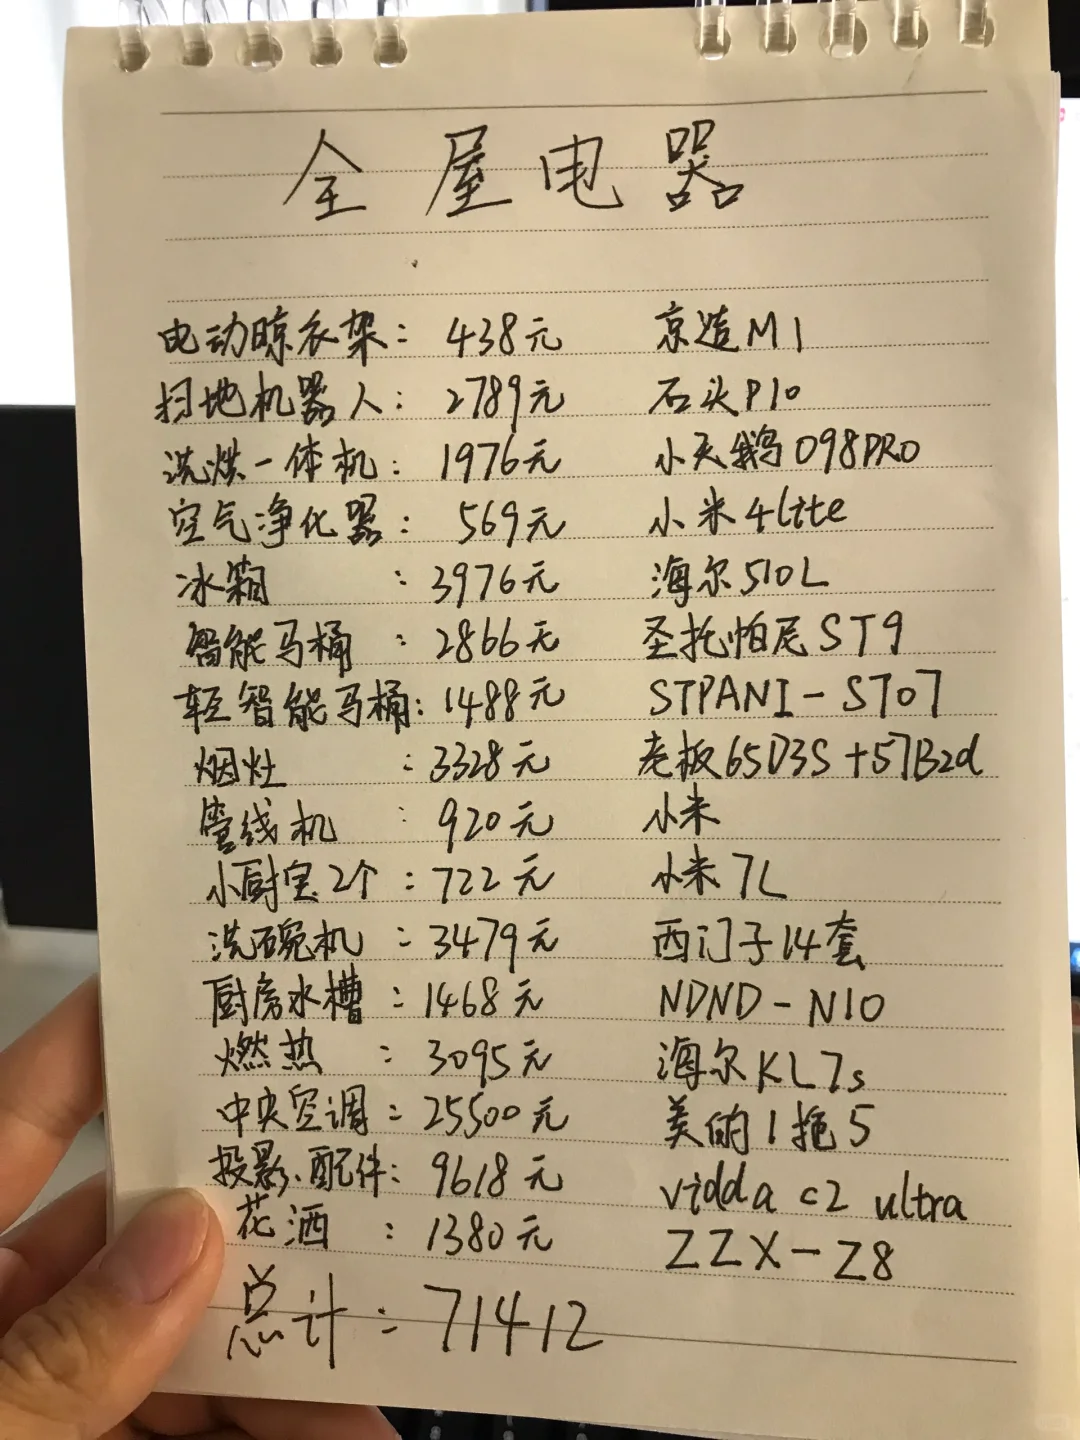 全屋电器
电动晾衣架: 438元 京造M1
扫地机器人: 2789元 石头P10
洗烘一体机: 1976元 小天鹅098PRO
空气净化器: 569元 小米4lite
冰箱: 3976元 海尔510L
智能马桶: 2866元 圣托帕尼ST9
轻智能马桶: 1488元 STPANI-ST07
烟灶: 3328元 老板65D3S+57B2d
管线机: 920元 小米
小厨宝2个: 722元 小米7L
洗碗机: 3479元 西门子14套
厨房水槽: 1468元 NDND-N10
燃热: 3095元 海尔KL7s
中央空调: 25500元 美的1拖5
投影、配件: 9618元 vidda c2 ultra
花洒: 1380元 ZZX-Z8
总计: 71412